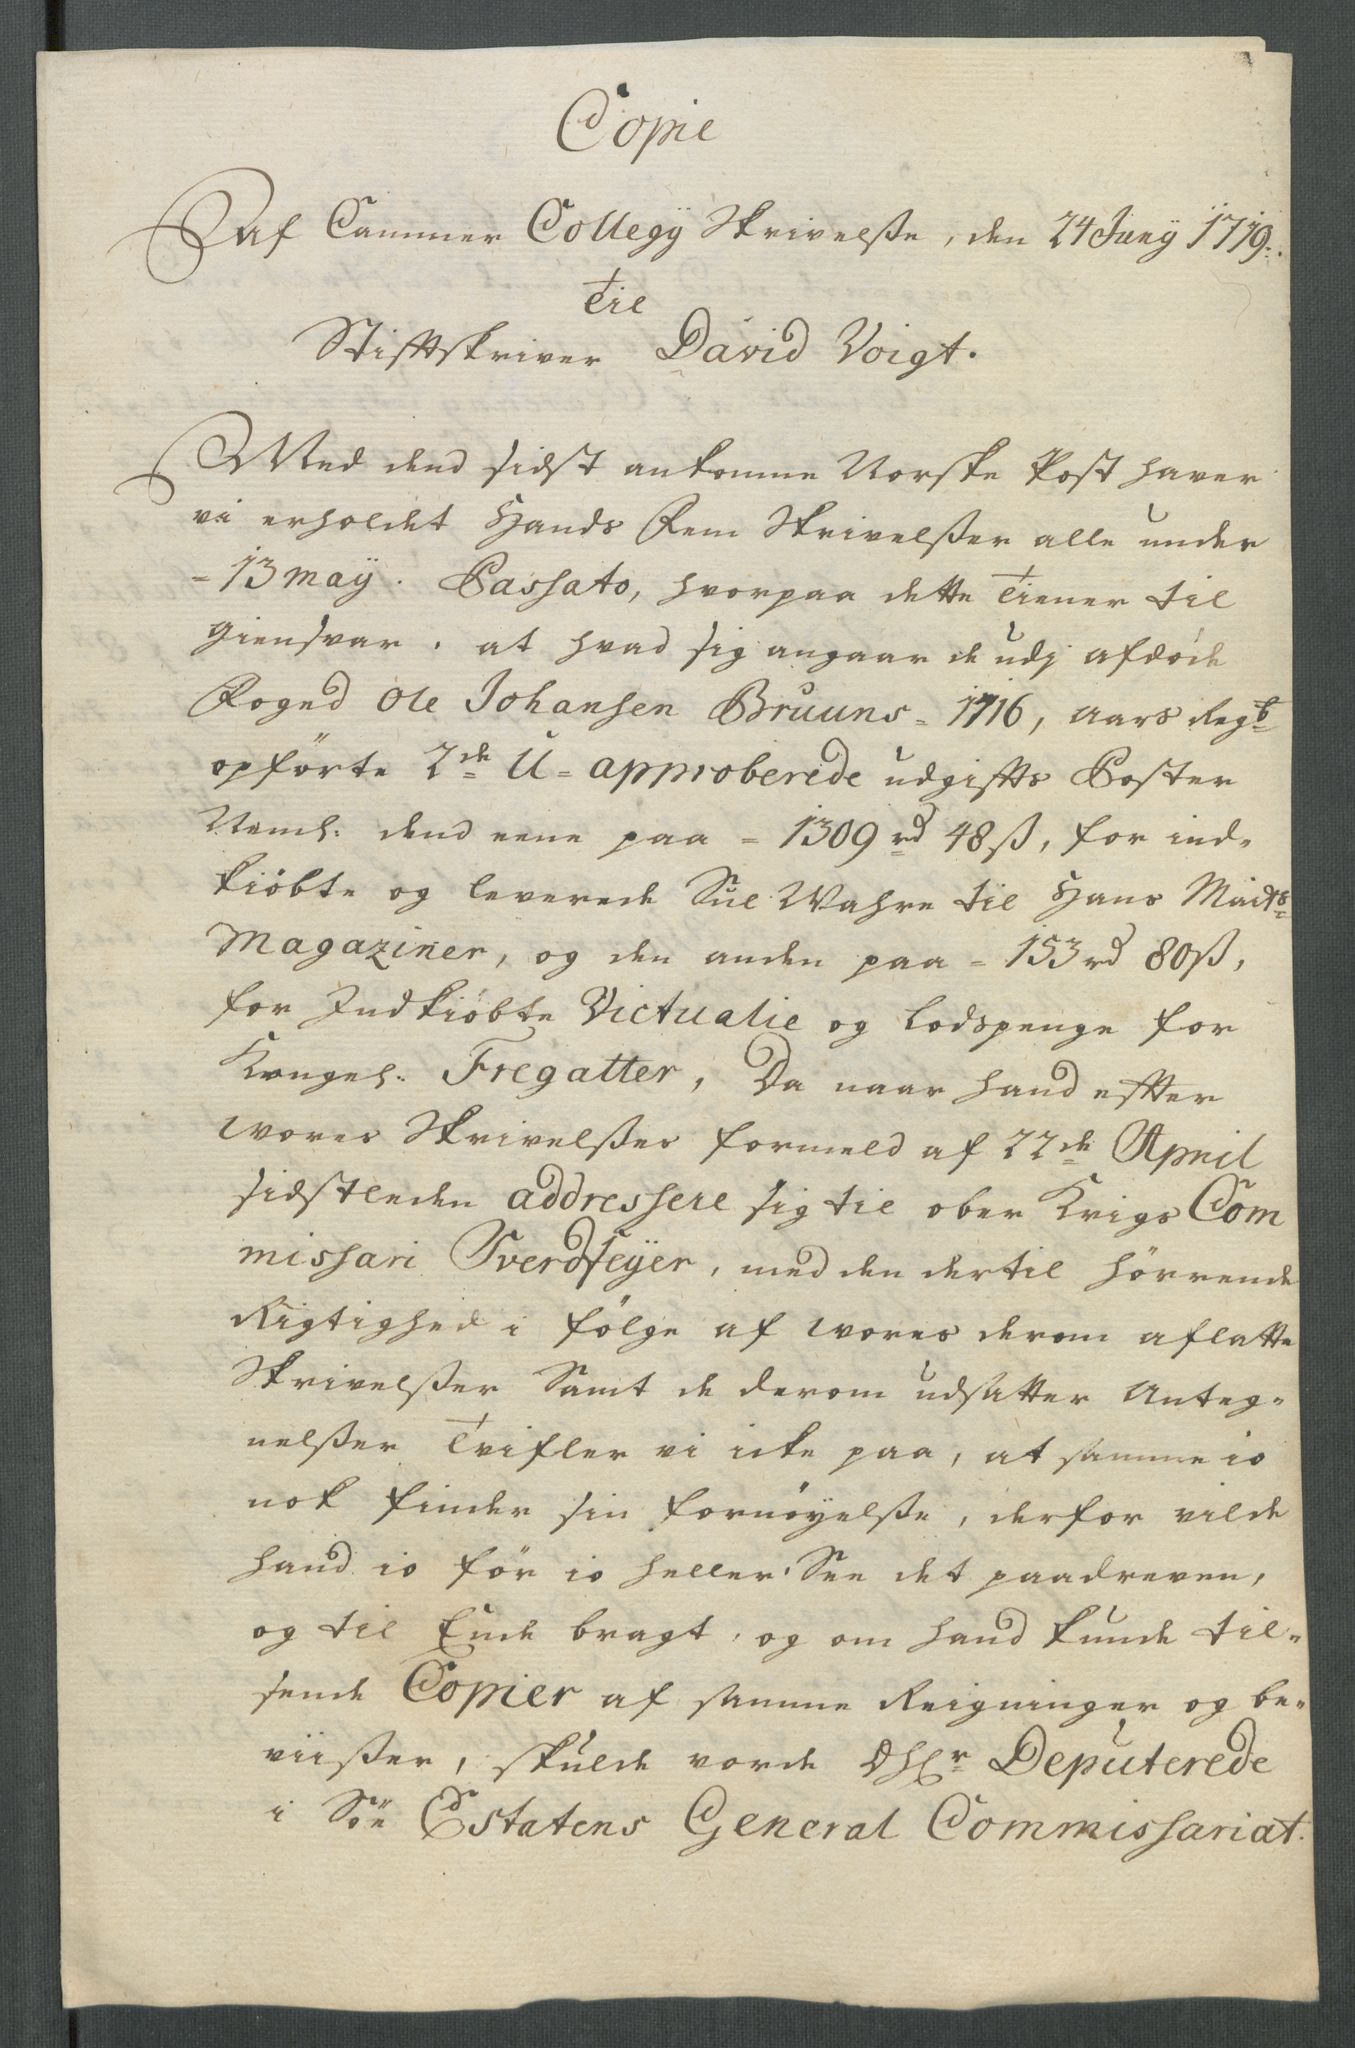 Copie
af Cammer Collegÿ Skrivelsße, den 24 Junÿ 1719.
Til
Stiftskriver David Voigt.
Med dend sidst ankomne Norske Post haver
vi erholdet Hands Fem Skrivelßer alle under
= 13 maÿ. Passato, hvorpaa dette Tiener til
giensvar. at hvad sig angaar de udj afdøde
Foged Ole Johansen Bruuns = 1716, aars Regb
opförte 2de U= approberede udgiffts Poster
Neml: dend eene paa = 1309 rd 48 ß, for ind-
kiöbte og leverede Sul Wahre til Hans Maits
Magaziner, og den anden paa = 153 rd 80 ß,
for Indkiöbte Victualie og Lodspenge for
Kongel: Fregatter, Da naar hand efter
wores Skrivelßes formeld af 22de April
sidstleden addressere sig til ober Krigs Com
missari Sverdfeÿer, med den dertil hörrende
Rigtighed i fölge af wores derom aflatte
Skrivelßer Samt de derom udsatter Anteg-
nelßer Tvifler vi icke paa, at samme io
nok finder sin fornöyelße, derfor vilde
hand io för io heller See det paadreven,
og til Ende bragt, og om hand kunde til-
sende Copier af samme Reigninger og be-
viißer, skulde vorde Dhr Deputerede
i Söe Estatens General Commissariat.